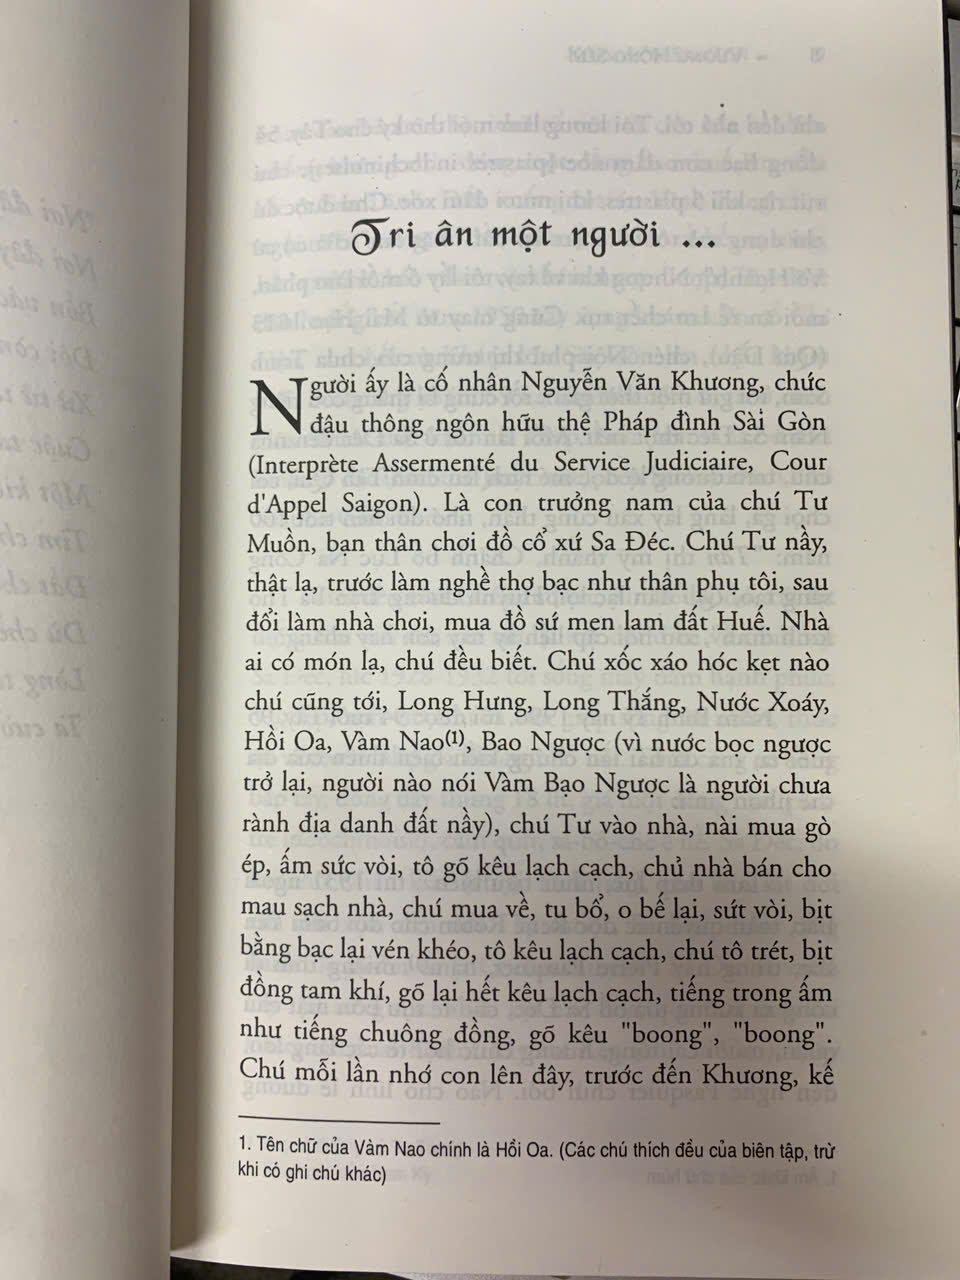 Tri ân một người ...
Người ấy là cố nhân Nguyễn Văn Khương, chức
đậu thông ngôn hữu thệ Pháp đình Sài Gòn
(Interprète Assermenté du Service Judiciaire, Cour
d'Appel Saigon). Là con trưởng nam của chú Tư
Muồn, bạn thân chơi đồ cổ xứ Sa Đéc. Chú Tư nầy,
thật lạ, trước làm nghề thợ bạc như thân phụ tôi, sau
đổi làm nhà chơi, mua đồ sứ men lam đất Huế. Nhà
ai có món lạ, chú đều biết. Chú xốc xáo hóc kẹt nào
chú cũng tới, Long Hưng, Long Thắng, Nước Xoáy,
Hồi Oa, Vàm Nao(1), Bao Ngược (vì nước bọc ngược
trở lại, người nào nói Vàm Bạo Ngược là người chưa
rành địa danh đất nầy), chú Tư vào nhà, nài mua gò
ép, ấm sức vòi, tô gõ kêu lạch cạch, chủ nhà bán cho
mau sạch nhà, chú mua về, tu bổ, o bế lại, sứt vòi, bịt
bằng bạc lại vén khéo, tô kêu lạch cạch, chú tô trét, bịt
đồng tam khí, gõ lại hết kêu lạch cạch, tiếng trong ấm
như tiếng chuông đồng, gõ kêu "boong", "boong".
Chú mỗi lần nhớ con lên đây, trước đến Khương, kế
1. Tên chữ của Vàm Nao chính là Hồi Oa. (Các chú thích đều của biên tập, trừ
khi có ghi chú khác)